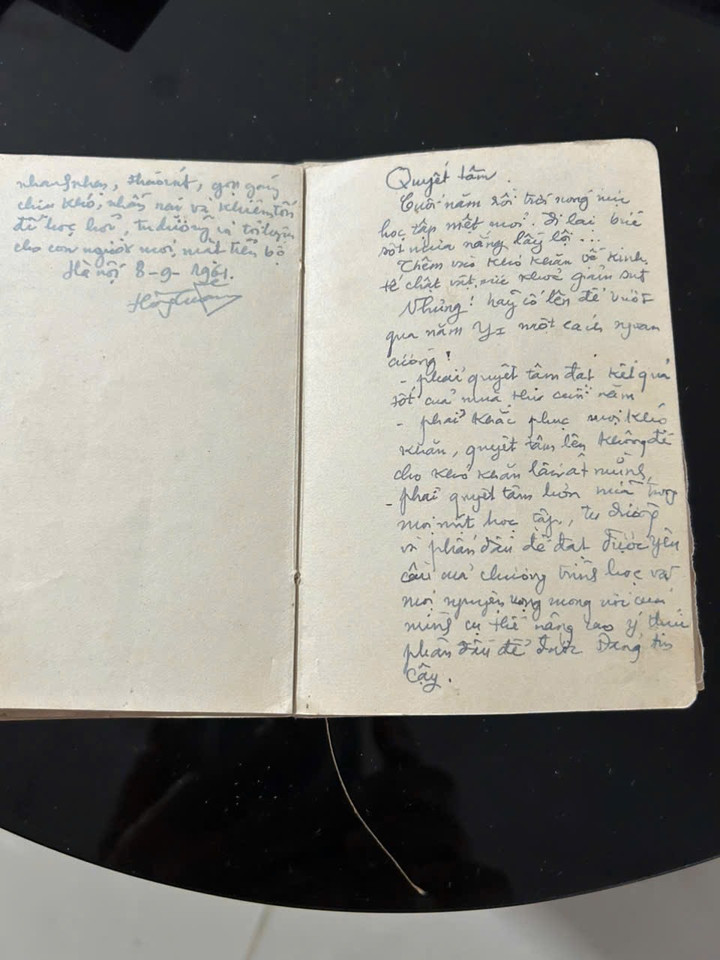 nhanh nhẹn, tháo vát, gọn gàng
chịu khó, nhẫn nại và khiêm tốn
để học hỏi, tu dưỡng và tôi luyện
cho con người mới, mát tiến bộ
Hà nội 8-9-1961.
Quyết tâm.
Cuối năm rồi trời nóng nực
học tập mệt mỏi. Đi lại
sốt mưa nắng lầy lội...
Thêm vào khó khăn về kinh
tế chật vật, sức khoẻ giảm sút
Nhưng! hãy cố lên để vượt
qua năm một cách ngoan
cường!
- phải quyết tâm đạt kết quả
tốt của mùa thi cuối năm
- phải khắc phục mọi khó
khăn, quyết tâm lên không để
cho khó khăn lấn át mình,
- phải quyết tâm hơn nữa trong
mọi mặt học tập, tu dưỡng
và phấn đấu để đạt được yêu
cầu của chương trình học và
mọi nguyện vọng mong ước của
mình cụ thể nâng cao ý thức
phấn đấu để được Đảng tin
cậy.